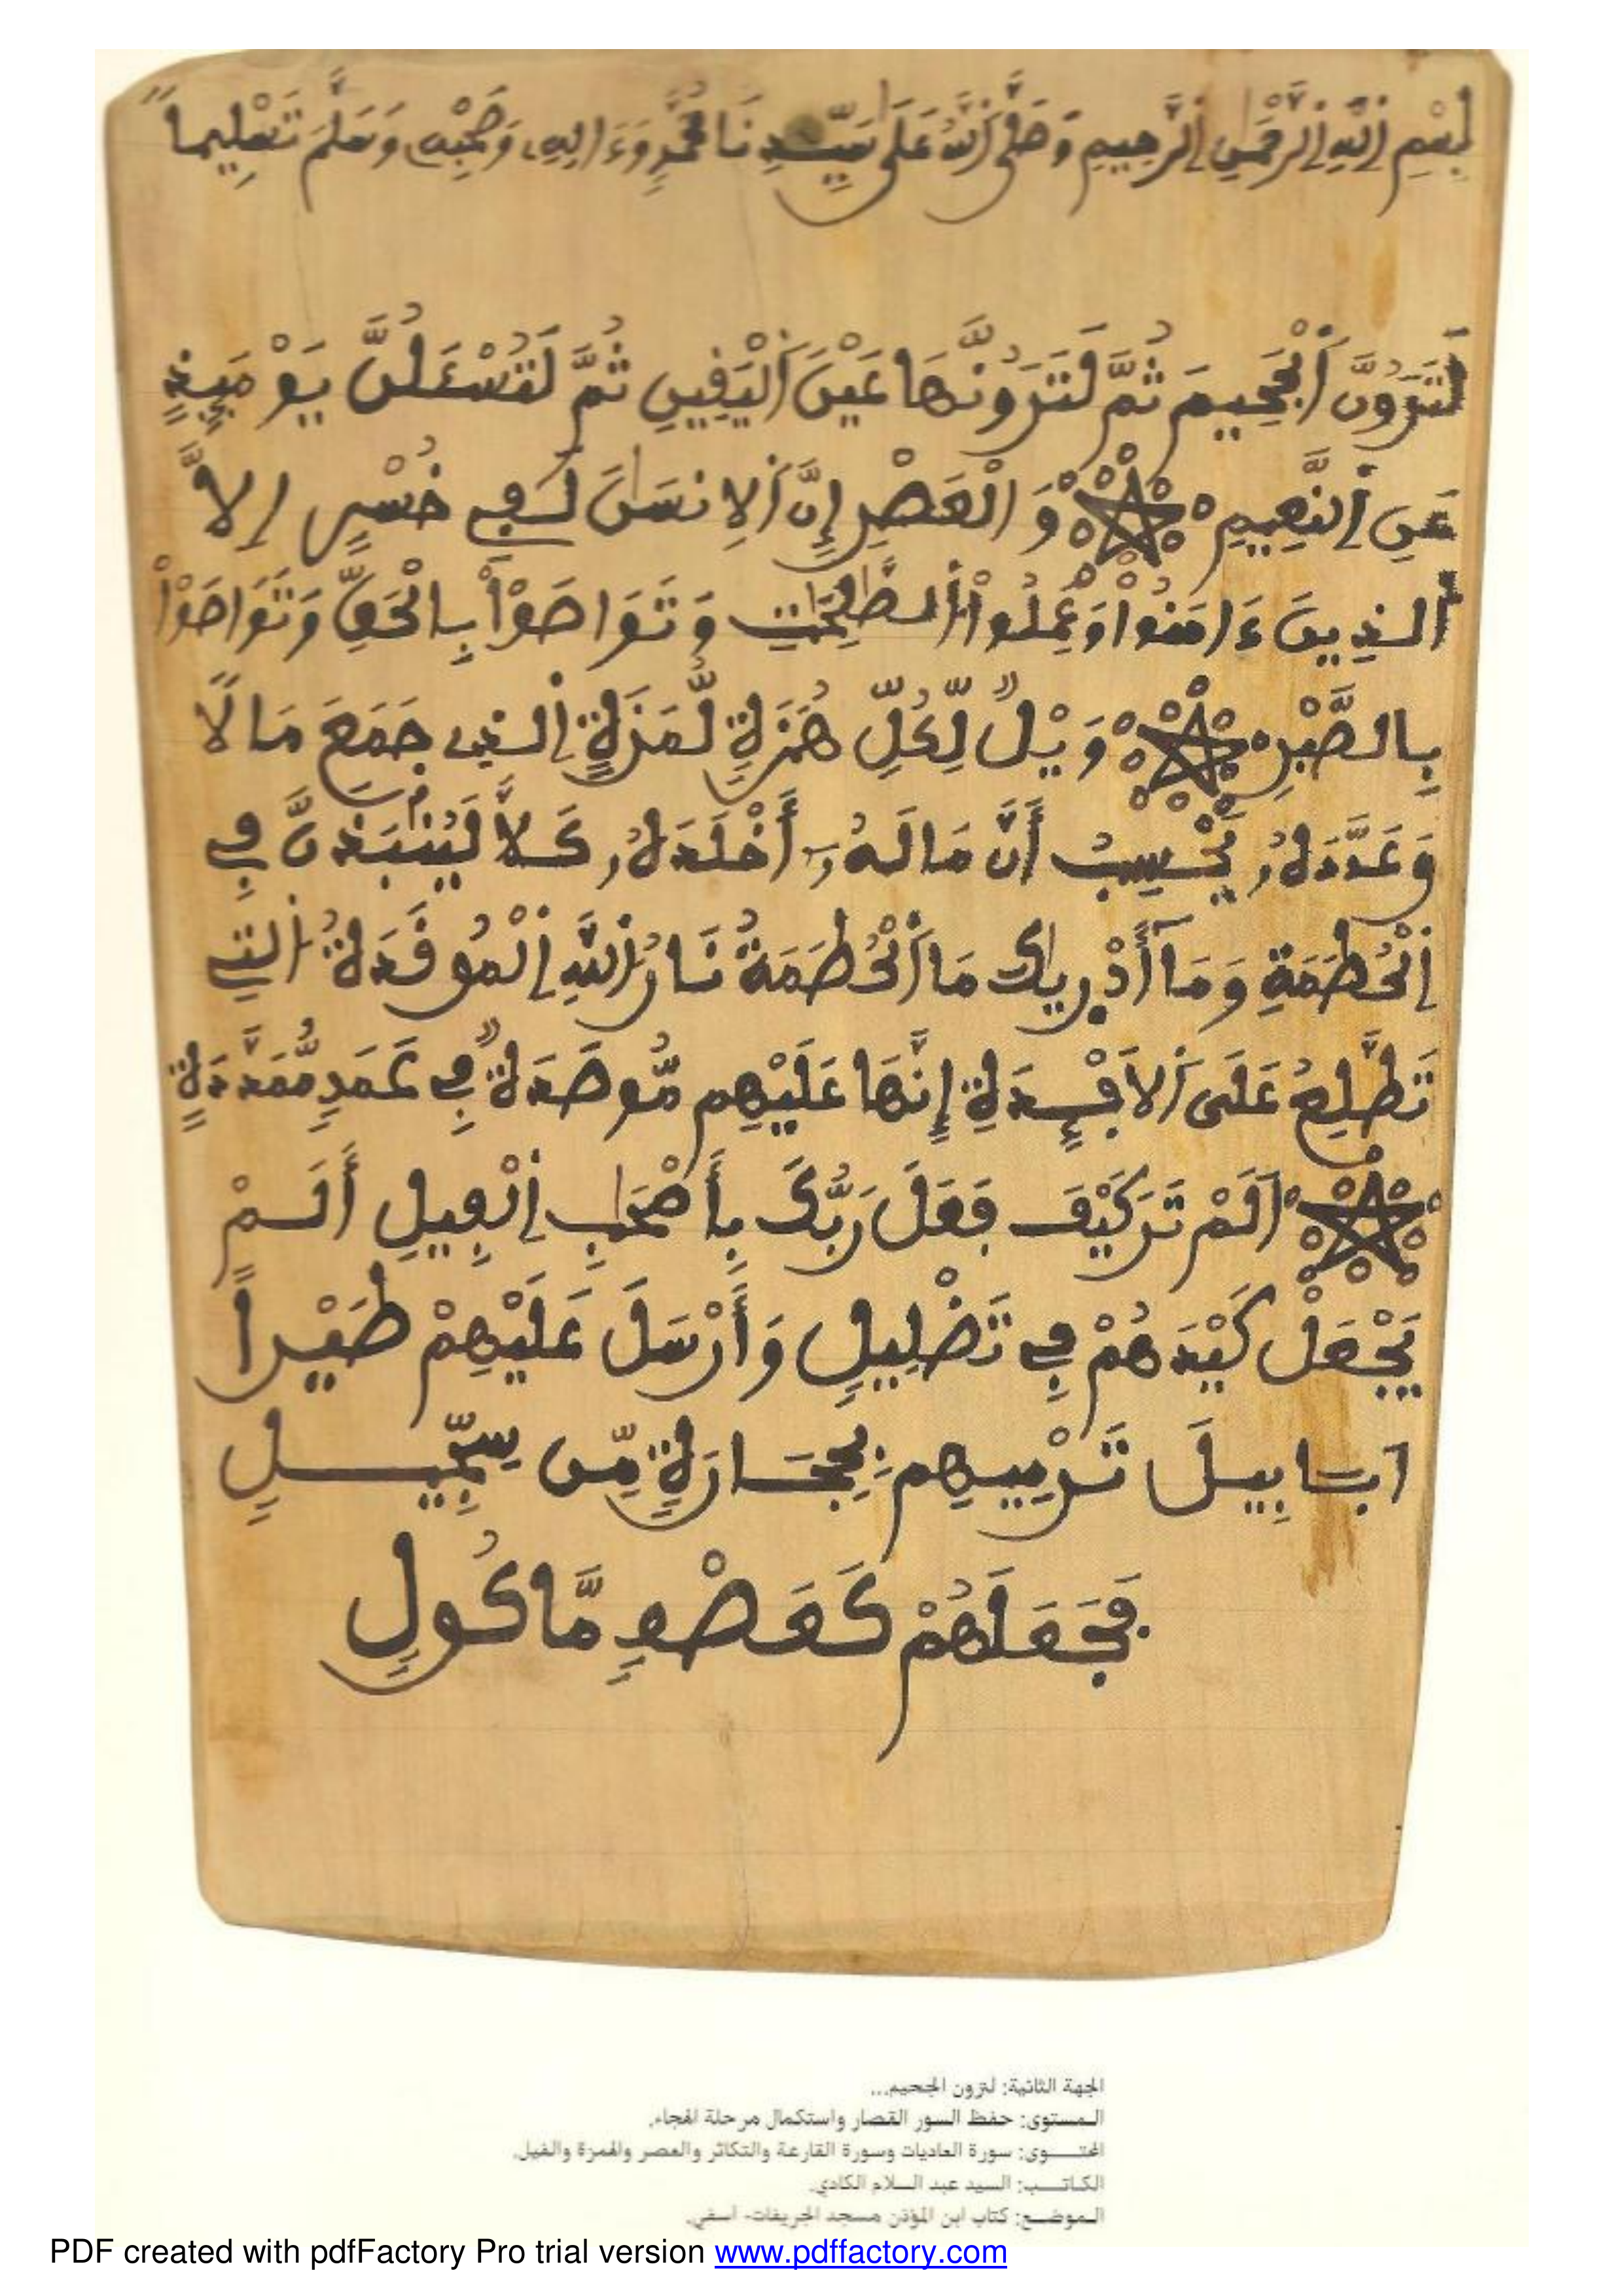 بِسْمِ اِ۬للَّهِ اِ۬لرَّحْمَٰنِ اِ۬لرَّحِيمِ وَصَلَّى اَ۬للَّهُ عَلَىٰ سَيِّدِنَا مُحَمَّدٍ وَءَالِهِۦ وَصَحْبِهِۦ وَسَلَّمَ تَسْلِيماً
لَتَرَوُنَّ اَ۬لْجَحِيمَ ثُمَّ لَتَرَوُنَّهَا عَيْنَ اَ۬لْيَفِينِ ثُمَّ لَتُسْـَٔلُنَّ يَوْمَئِذٍ
عَنِ اِ۬لنَّعِيمِ وَالْعَصْرِ إِنَّ اَ۬لِانسَٰنَ لَفِے خُسْرٍ اِلَّا
اَ۬لذِينَ ءَامَنُواْ وَعَمِلُواْ اُ۬لصَّٰلِحَٰتِ وَتَوَاصَوْاْ بِالْحَقِّ وَتَوَاصَوْاْ
بِالصَّبْرِ وَيْلٌ لِّكُلِّ هُمَزَةٍ لُّمَزَةٍ اِ۬لذِے جَمَعَ مَالًا
وَعَدَّدَهُۥ يَحْسِبُ أَنَّ مَالَهُۥٓ أَخْلَدَهُۥ كَلَّا لَيُنۢبَذَنَّ فِے
اِ۬لْحُطَمَةِ وَمَآ أَدْر۪يٰكَ مَا اَ۬لْحُطَمَةُ نَارُ اُ۬للَّهِ اِ۬لْمُوقَدَةُ اُ۬لتِے
تَطَّلِعُ عَلَى اَ۬لَافْـِٕدَةِ إِنَّهَا عَلَيْهِم مُّوصَدَةٌ فِے عَمَدٍ مُّمَدَّدَةٍ
اَلَمْ تَرَ كَيْفَ فَعَلَ رَبُّكَ بِأَصْحَٰبِ اِ۬لْفِيلِ أَلَمْ
يَجْعَلْ كَيْدَهُمْ فِے تَضْلِيلٍ وَأَرْسَلَ عَلَيْهِمْ طَيْراً
اَبَابِيلَ تَرْمِيهِم بِحِجَارَةٍ مِّن سِجِّيلٍ
فَجَعَلَهُمْ كَعَصْفٍ مَّاكُولٍ
الجهة الثانية: لترون الجحيم...
المستوى: حفظ السور القصار واستكمال مرحلة الهجاء.
المحتوى: سورة العاديات وسورة القارعة والتكاثر والعصر والهمزة والفيل.
الكاتب: السيد عبد السلام الكادي.
الموضع: كتاب ابن المؤذن مسجد الجريفات- آسفي.
PDF created with pdfFactory Pro trial version www.pdffactory.com